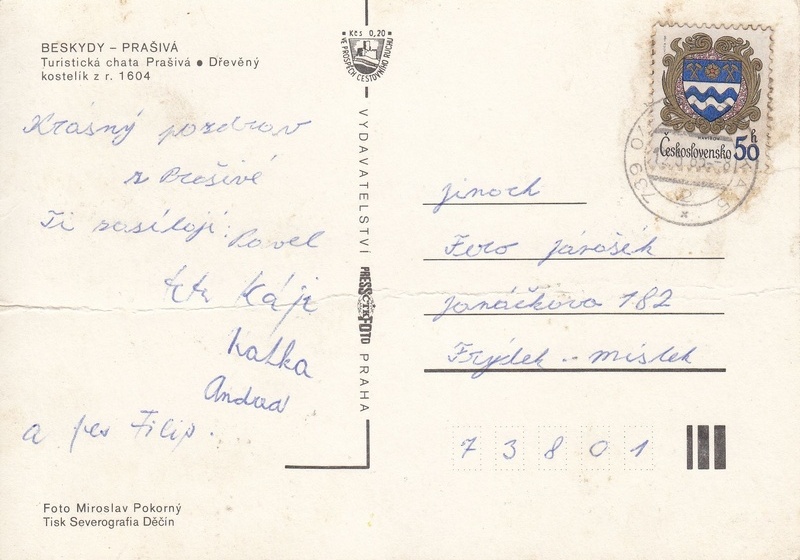 BESKYDY – PRAŠIVÁ
Turistická chata Prašivá ● Dřevěný
kostelík z r. 1604
Krásný pozdrav
z Prašivé
Ti zasílají: Pavel
teta Kája
Katka
Andrea
a pes Filip.
Foto Miroslav Pokorný
Tisk Severografia Děčín
Kčs 0,20
VE PROSPĚCH CESTOVNÍHO RUCHU
VYDAVATELSTVÍ
PRESSFOTO
ČTK
PRAHA
Československo 50 h
739
jinoch
Fero Jarošík
Janáčkova 182
Frýdek - Místek
73801